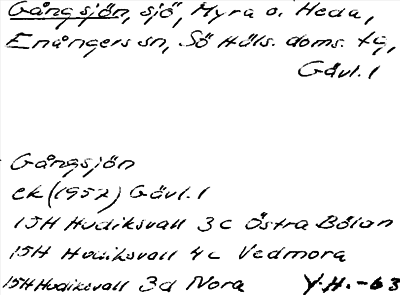 Gångsjön, sjö, Myra o. Heda,
Enångers sn, Sö Häls. doms. tg,
Gävl. l
Gångsjön
ek (1957) Gävl. l
15H Hudiksvall 3c Östra Bölan
15H Hudiksvall 4c Vedmora
15H Hudiksvall 3d Nora Y.H. -63